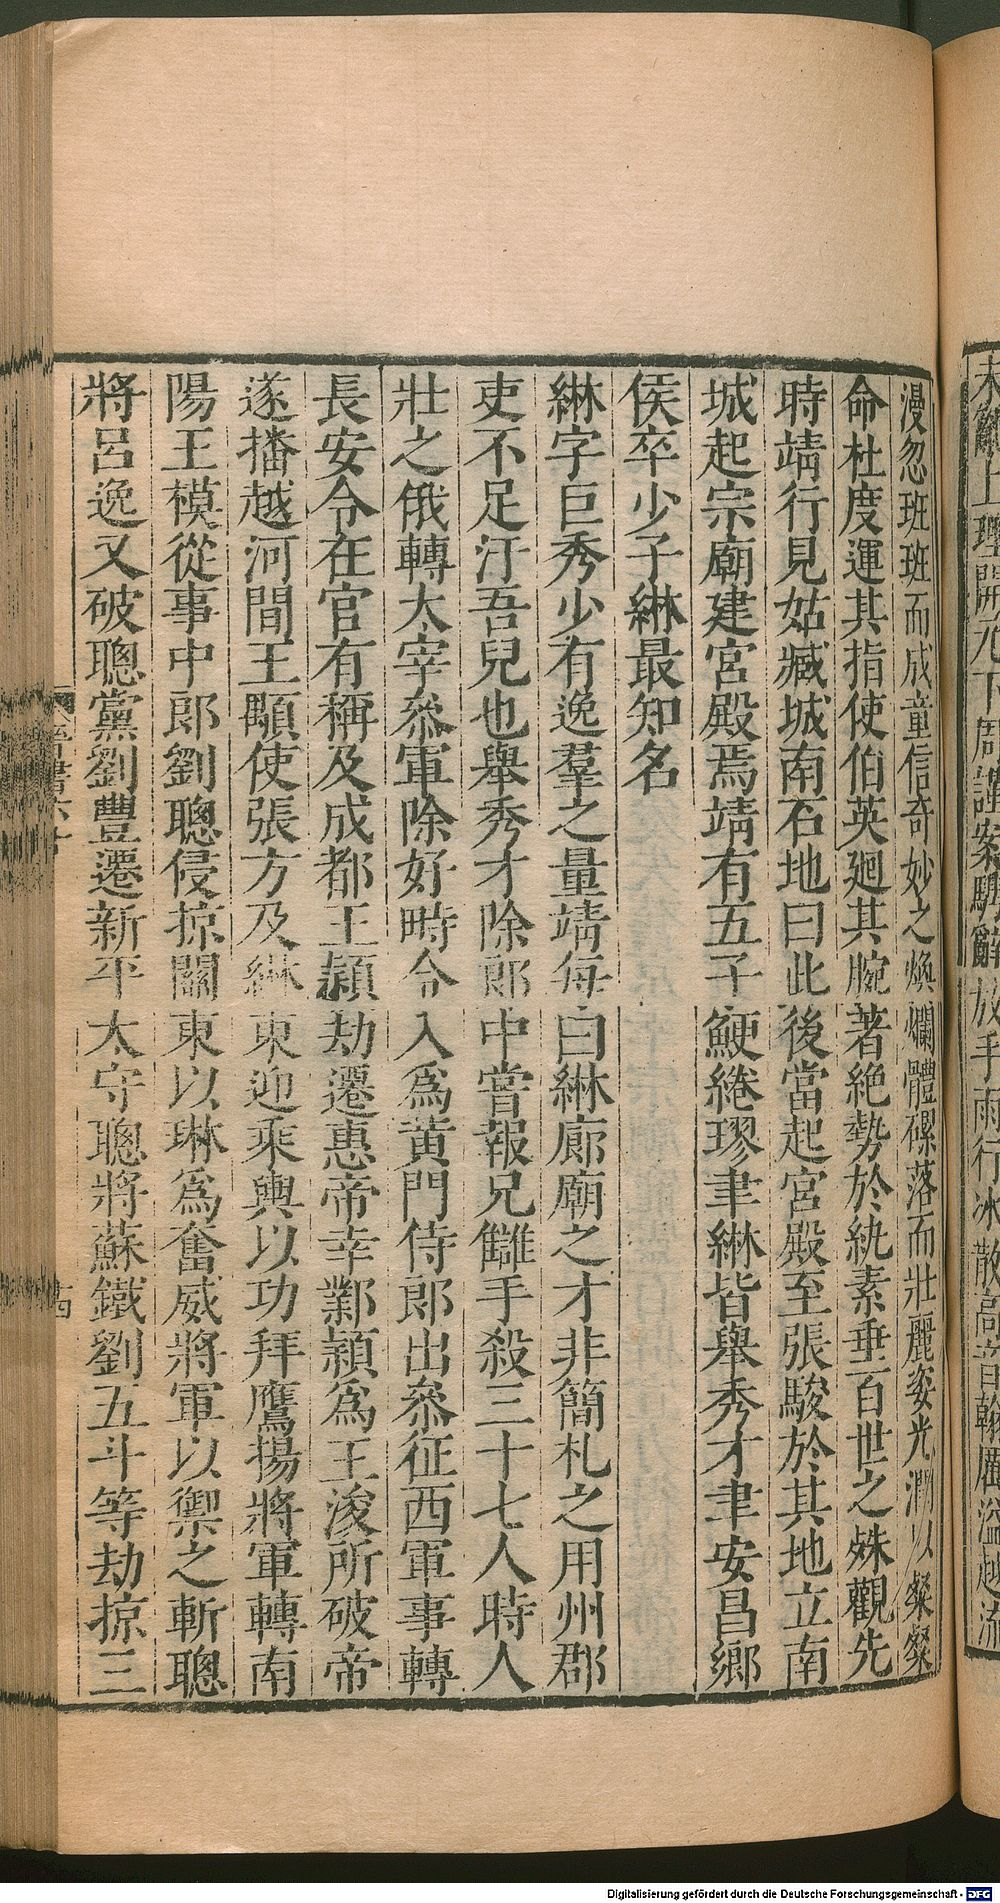 漫忽班班而成章信奇妙之煥爛體磥落而壯麗姿光潤以粲粲
命杜度運其指使伯英廻其腕著絶勢於紈素垂百世之殊觀先
時靖行見姑臧城南石地曰此後當起宮殿至張駿於其地立南
城起宗廟建宮殿焉靖有五子鯁綣璆聿綝皆舉秀才聿安昌鄉
侯卒少子綝最知名
綝字巨秀少有逸羣之量靖每曰綝廊廟之才非簡札之用州郡
吏不足汙吾兒也舉秀才除郎中嘗報兄讎手殺三十七人時人
壯之俄轉太宰叅軍除好畤令入爲黄門侍郎出叅征西軍事轉
長安令在官有稱及成都王穎劫遷惠帝幸鄴穎爲王浚所破帝
遂播越河間王顒使張方及綝東迎乘輿以功拜鷹揚將軍轉南
陽王模從事中郎劉聰侵掠關東以琳爲奮威將軍以禦之斬聰
將呂逸又破聰黨劉豐遷新平太守聰將蘇鐵劉五斗等劫掠三
Digitalisierung gefördert durch die Deutsche Forschungsgemeinschaft - DFG